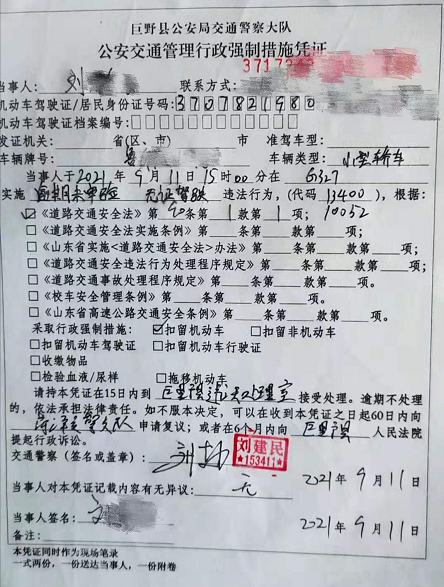 巨野县公安局交通警察大队
公安交通管理行政强制措施凭证
3717
当事人：刘 联系方式：
机动车驾驶证/居民身份证号码：3707821980
机动车驾驶证档案编号：
发证机关： 省(区、市) 市 准驾车型：
车辆牌号：鲁 车辆类型：小型轿车
当事人于2021年9月11日15时00分在G327
实施逾期未审验 无证驾驶 违法行为，(代码13400)，根据：
☑《道路交通安全法》第 条第1款第1项；10052
□《道路交通安全法实施条例》第 条第 款第 项；
□《山东省实施<道路交通安全法>办法》第 条第 款第 项；
□《道路交通安全违法行为处理程序规定》第 条第 款第 项；
□《道路交通事故处理程序规定》第 条第 款第 项。
□《校车安全管理条例》第 条第 款第 项。
□《山东省高速公路交通安全条例》第 条第 款第 项。
采取行政强制措施：☑扣留机动车 □扣留非机动车
□扣留机动车驾驶证 □扣留机动车行驶证
□收缴物品
□检验血液/尿样 □拖移机动车
请持本凭证在15日内到 处理室 接受处理。逾期不处理
的，依法承担法律责任。如不服本决定，可以在收到本凭证之日起60日内向
申请复议；或者在6个月内向 人民法院
提起行政诉讼。
交通警察（签名或盖章）： 刘建民
★153411★
2021年9月11日
当事人对本凭证记载内容有无异议：无
当事人签名： 2021年9月11日
备注：
本凭证同时作为现场笔录
一式两份，一份送达当事人，一份附卷